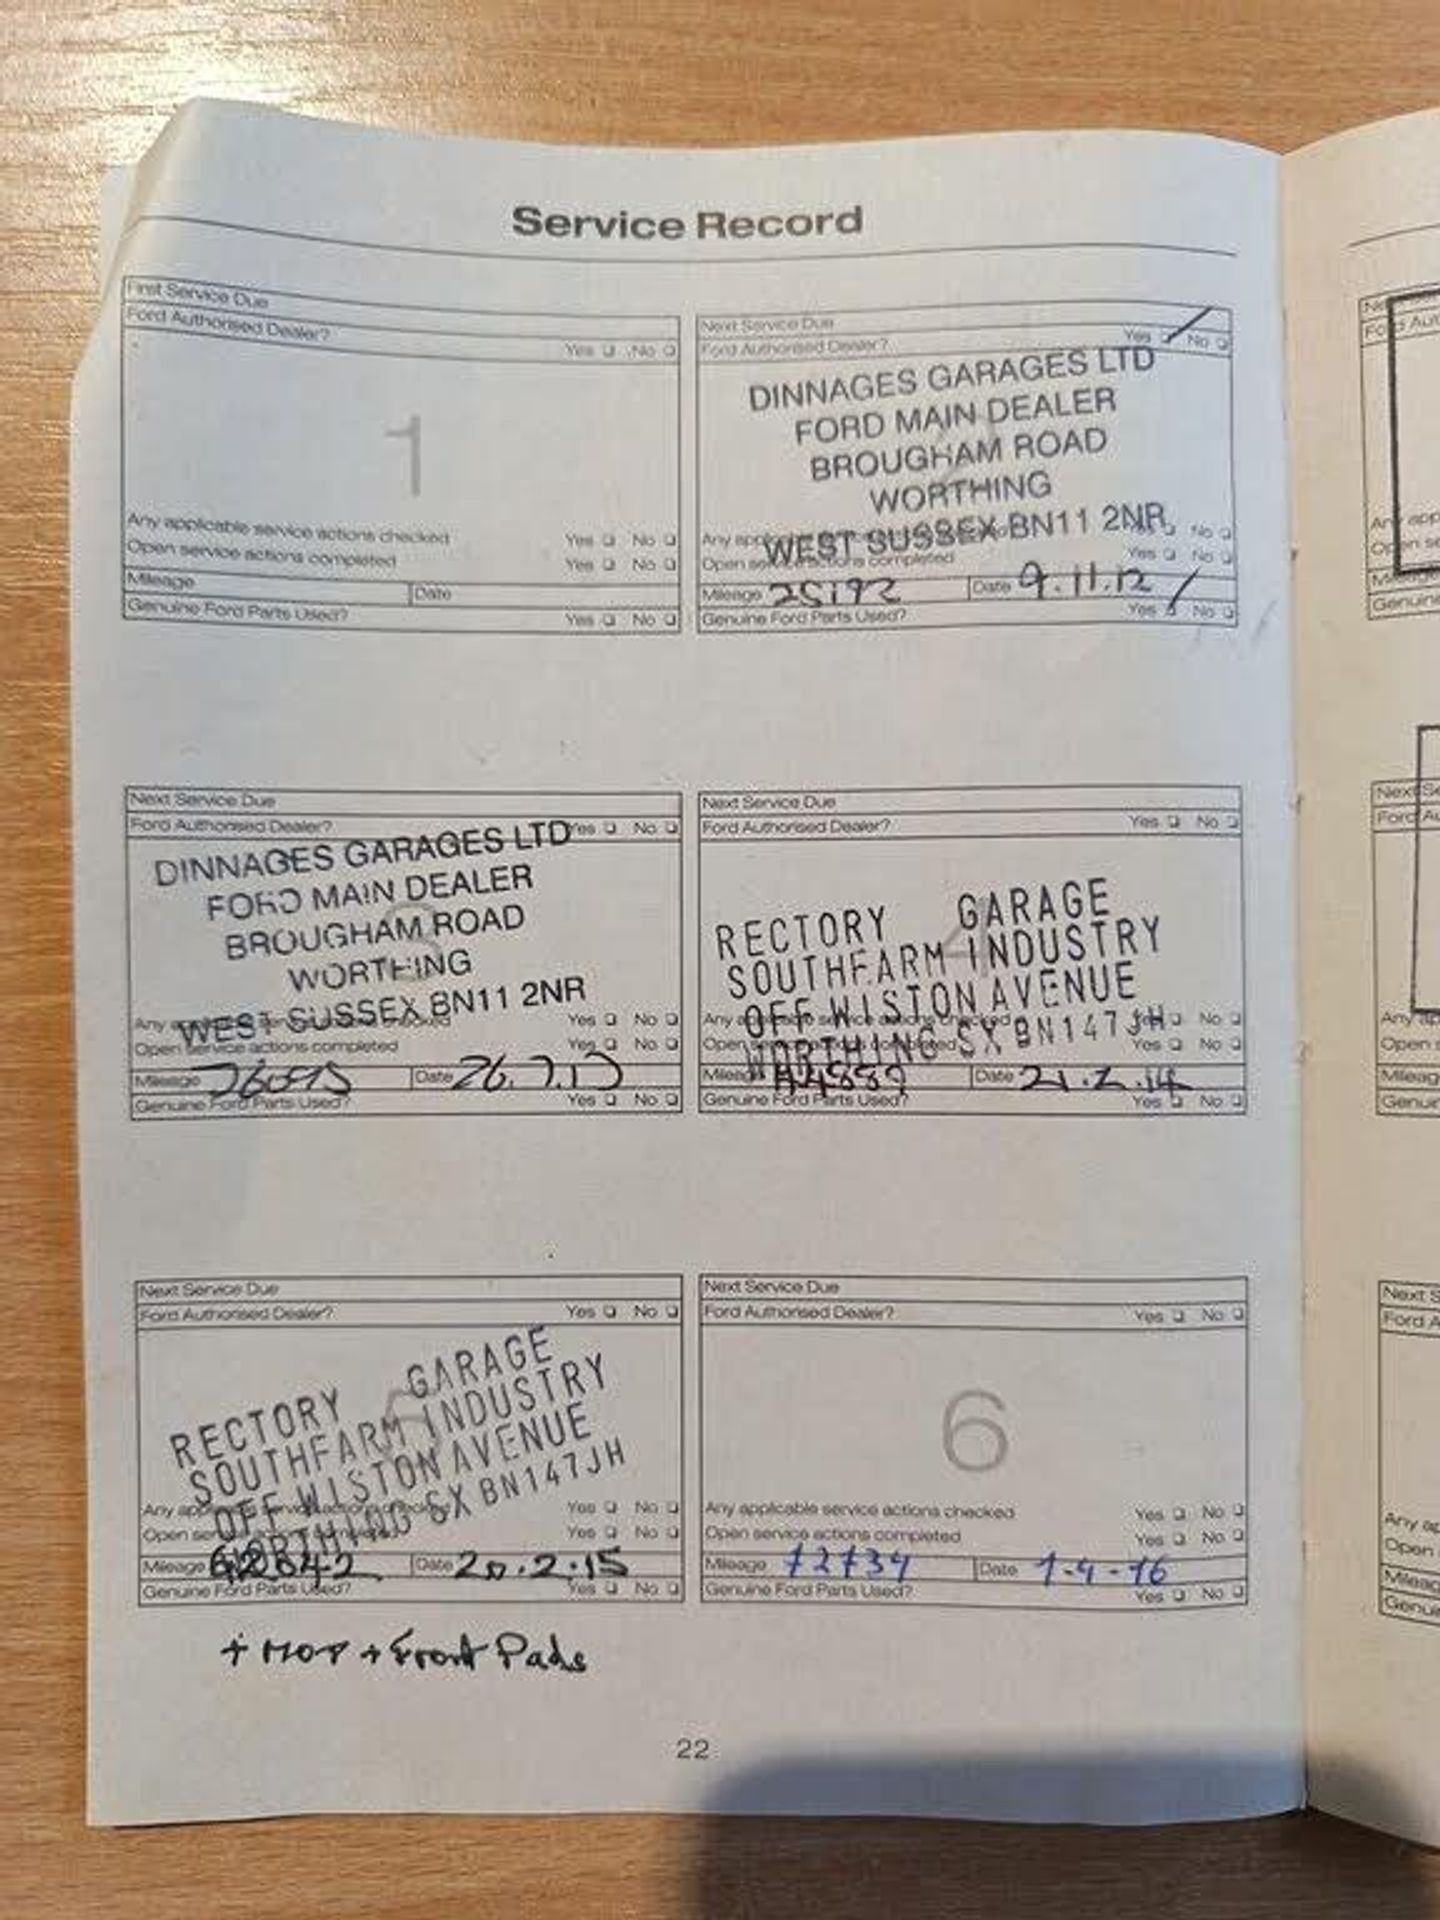 Service Record
First Service Due
Ford Authorised Dealer?
Yes No
1
Any applicable service actions checked Yes No
Open service actions completed Yes No
Mileage Date
Genuine Ford Parts Used? Yes No
Next Service Due
Ford Authorised Dealer? Yes No
DINNAGES GARAGES LTD
FORD MAIN DEALER
BROUGHAM ROAD
WORTHING
WEST SUSSEX BN11 2NR
No
Open service actions completed Yes No
Mileage 25192 Date 9.11.12
Genuine Ford Parts Used? Yes No
Next Service Due
Ford Authorised Dealer? Yes No
DINNAGES GARAGES LTD
FORD MAIN DEALER
BROUGHAM ROAD
3
WORTHING
WEST SUSSEX BN11 2NR
Any checked Yes No
Open service actions completed Yes No
Mileage Date 26.7.13
Genuine Ford Parts Used? Yes No
Next Service Due
Ford Authorised Dealer? Yes No
RECTORY GARAGE
SOUTHFARM INDUSTRY
4
OFF WISTON AVENUE
WORTHING SX BN147JH
Any applicable service actions checked No
Open service actions completed Yes No
Mileage 44889 Date 21.2.14
Genuine Ford Parts Used? Yes No
Next Service Due
Ford Authorised Dealer? Yes No
RECTORY GARAGE
SOUTHFARM INDUSTRY
5
OFF WISTON AVENUE
WORTHING SX BN147JH
Any applicable service actions checked Yes No
Open service actions completed Yes No
Mileage Date 20.2.15
Genuine Ford Parts Used? Yes No
+ MOT + Front Pads
Next Service Due
Ford Authorised Dealer? Yes No
6
Any applicable service actions checked Yes No
Open service actions completed Yes No
Mileage 72739 Date 1-4-16
Genuine Ford Parts Used? Yes No
22